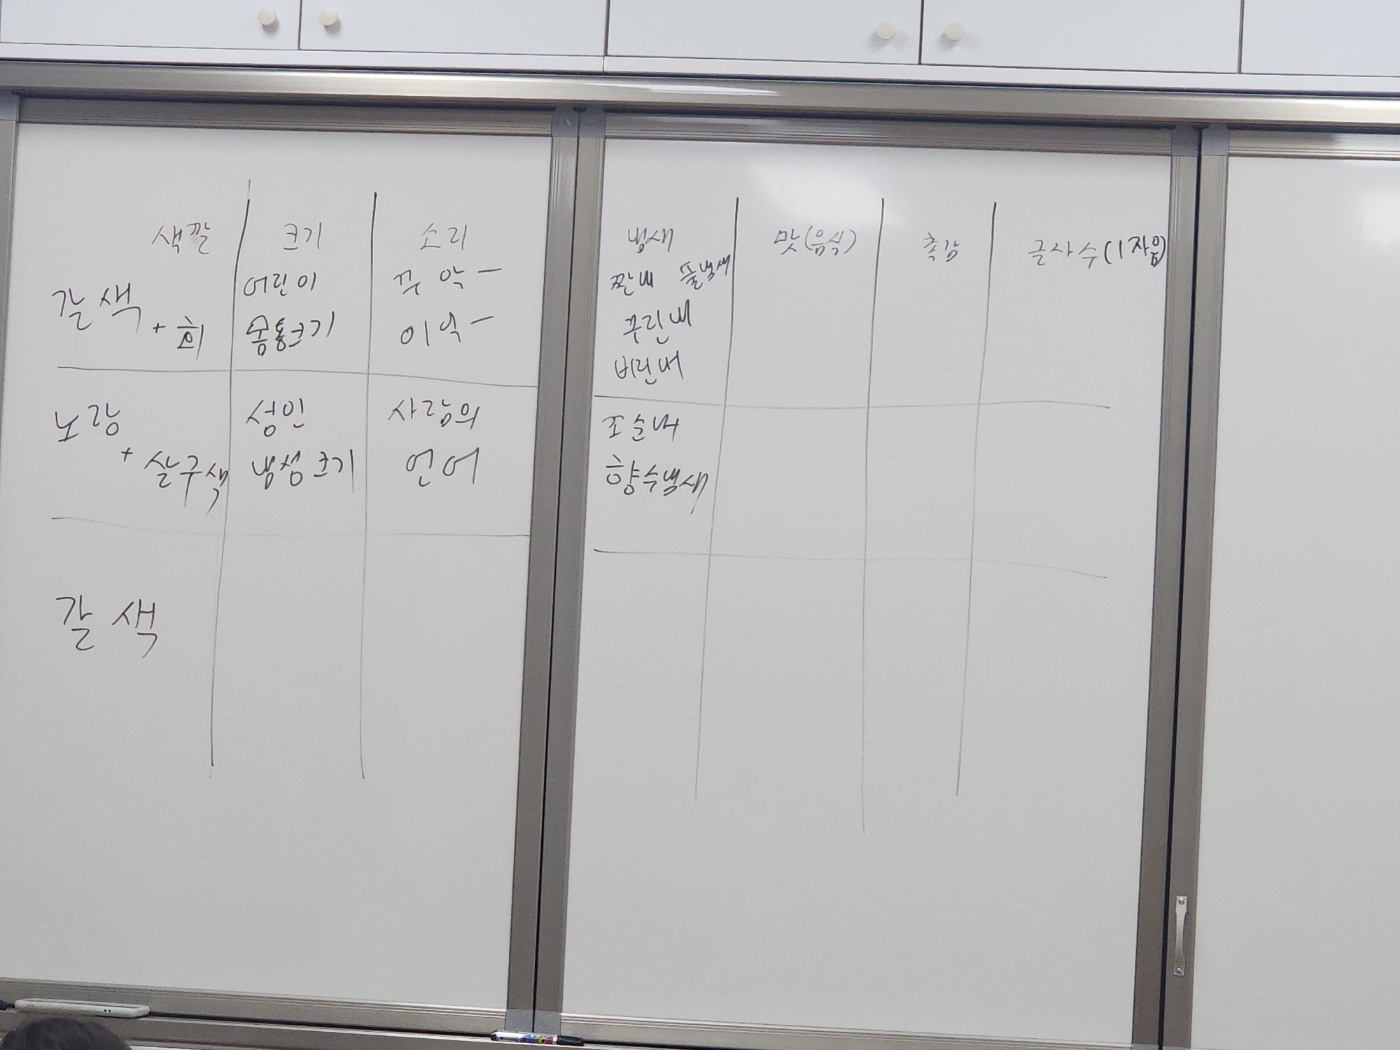 색깔 크기 소리 냄새 맛(음식) 촉감 글자수(1자음)
갈색 + 희 어린이 몸통크기 꾸악- 이익- 짠내 풀냄새 꾸린내 비린내
노랑 + 살구색 성인 냄성크기 사람의 언어 조순내 향수냄새
갈색